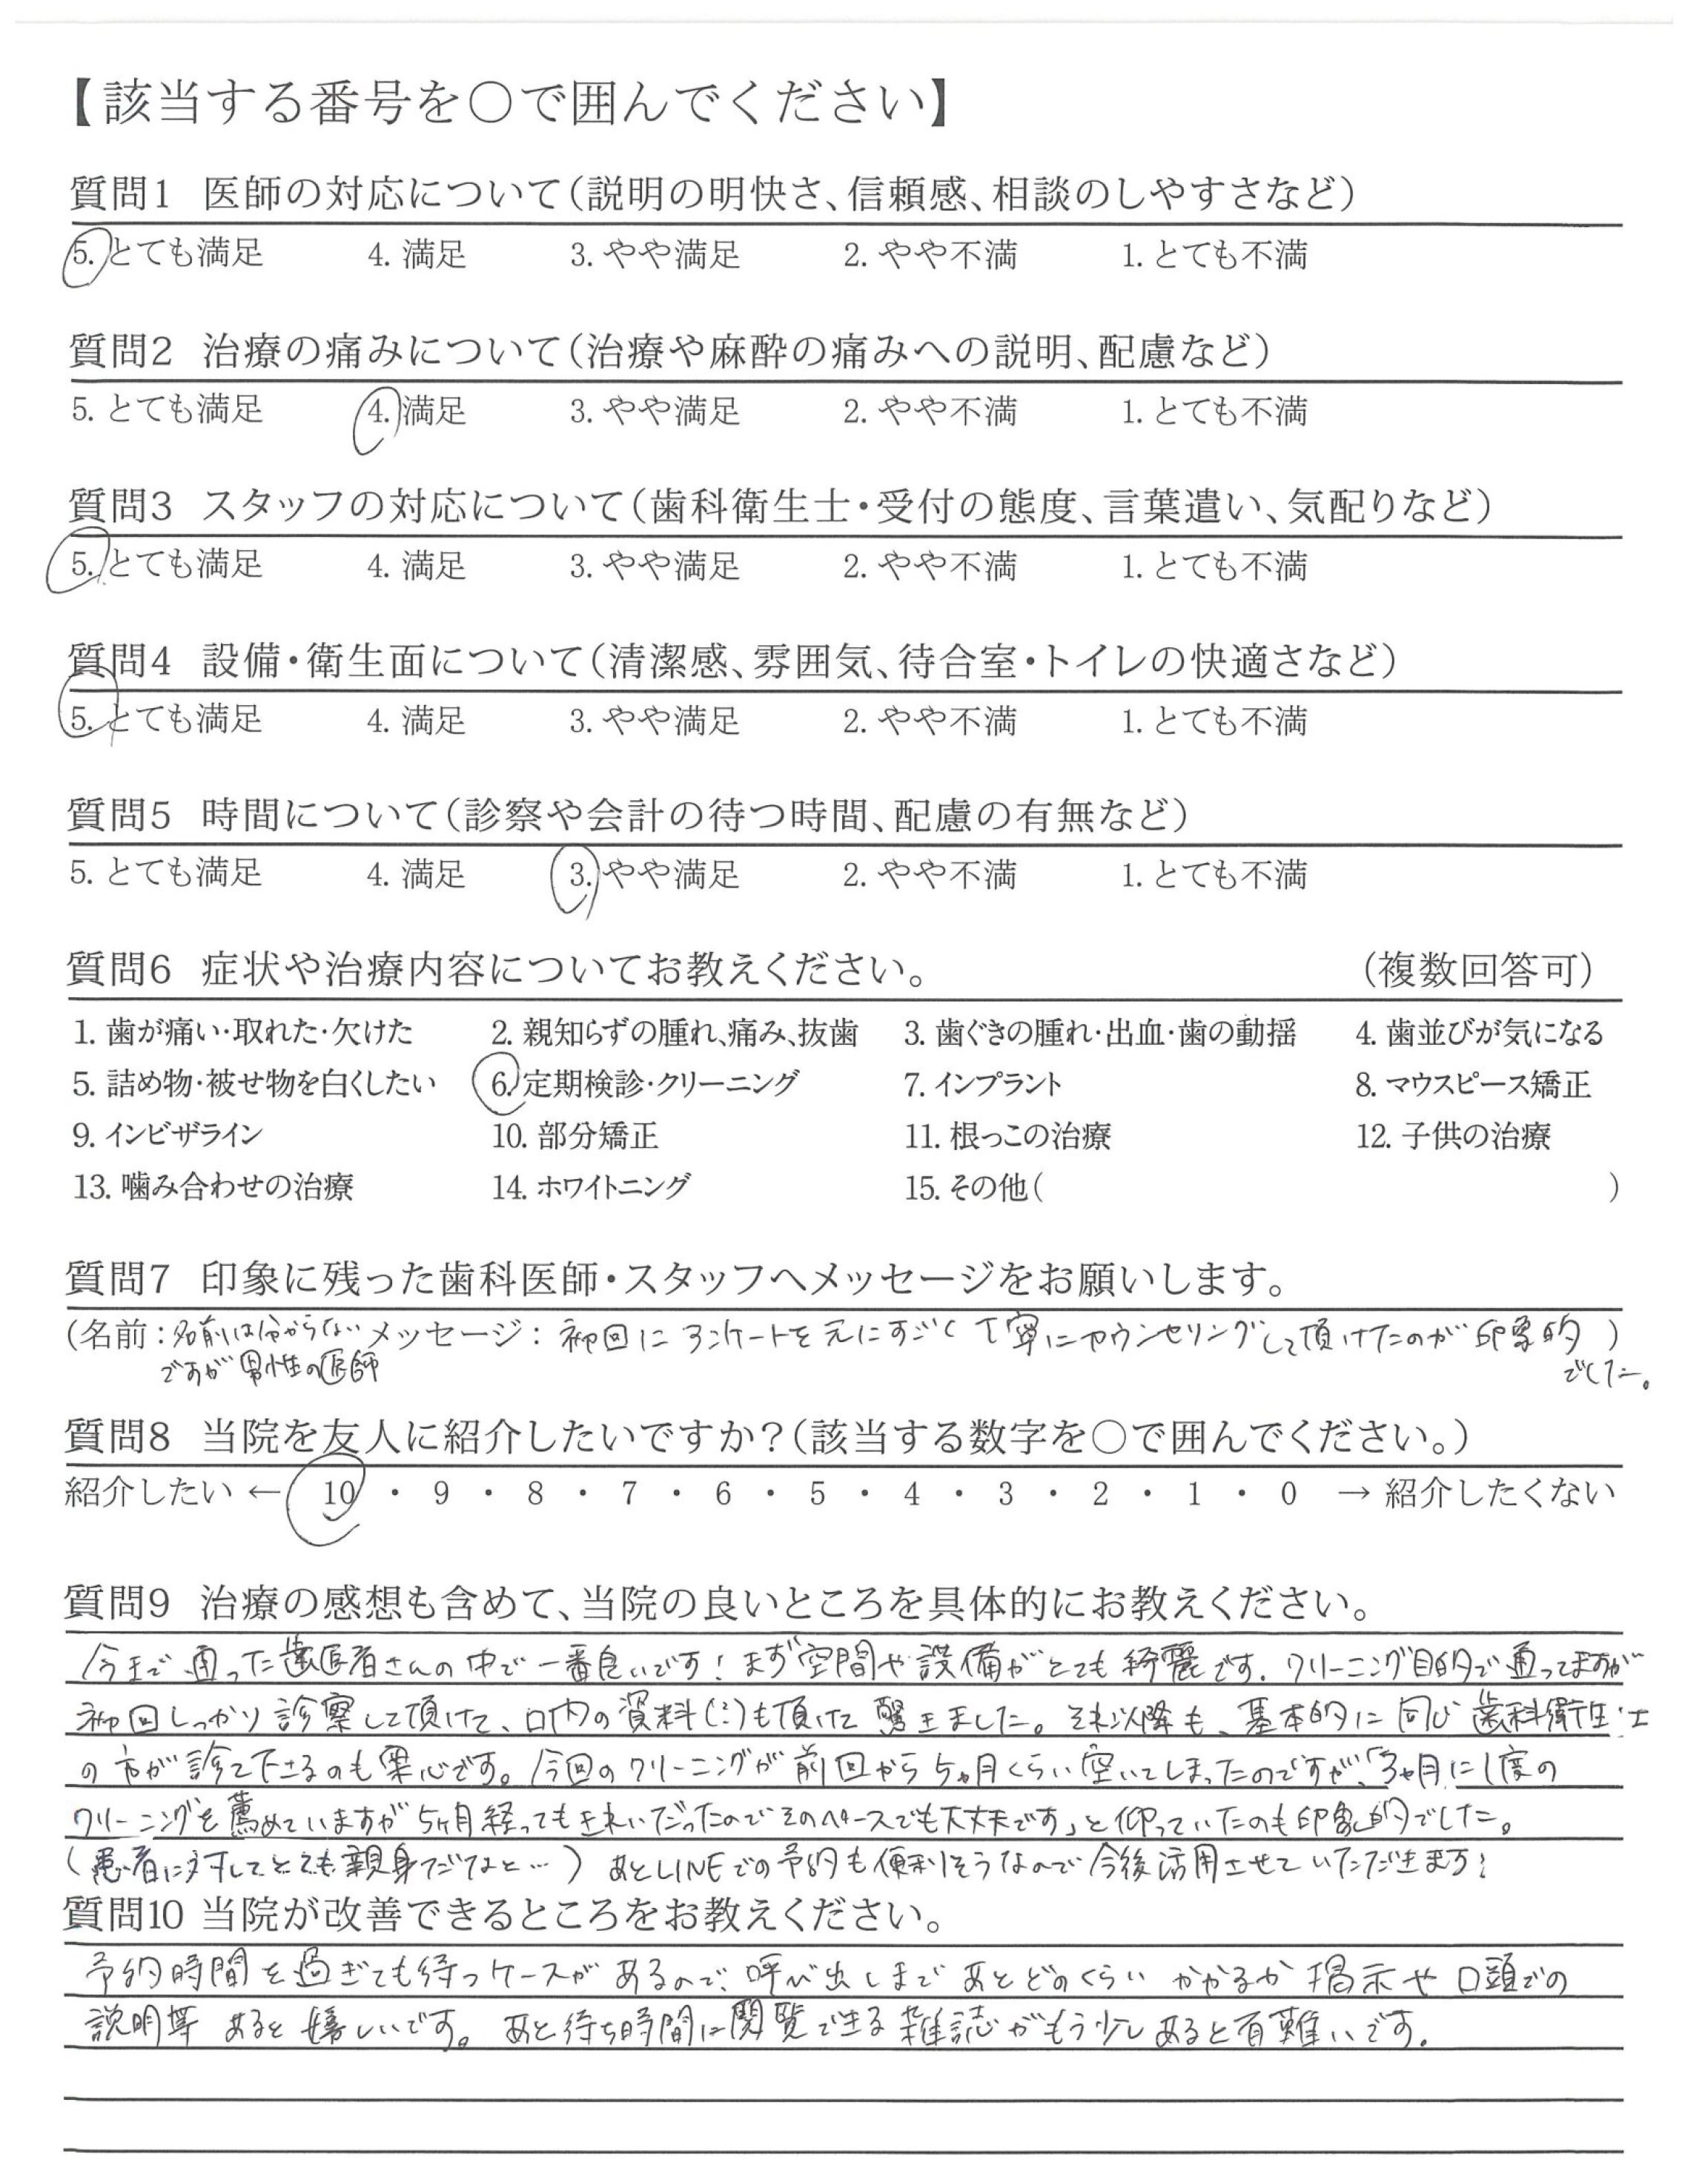 【該当する番号を○で囲んでください】
質問1 医師の対応について(説明の明快さ、信頼感、相談のしやすさなど)
5. とても満足 4. 満足 3. やや満足 2. やや不満 1. とても不満
質問2 治療の痛みについて(治療や麻酔の痛みへの説明、配慮など)
5. とても満足 4. 満足 3. やや満足 2. やや不満 1. とても不満
質問3 スタッフの対応について(歯科衛生士・受付の態度、言葉遣い、気配りなど)
5. とても満足 4. 満足 3. やや満足 2. やや不満 1. とても不満
質問4 設備・衛生面について(清潔感、雰囲気、待合室・トイレの快適さなど)
5. とても満足 4. 満足 3. やや満足 2. やや不満 1. とても不満
質問5 時間について(診察や会計の待つ時間、配慮の有無など)
5. とても満足 4. 満足 3. やや満足 2. やや不満 1. とても不満
質問6 症状や治療内容についてお教えください。 (複数回答可)
1. 歯が痛い・取れた・欠けた 2. 親知らずの腫れ、痛み、抜歯 3. 歯ぐきの腫れ・出血・歯の動揺 4. 歯並びが気になる
5. 詰め物・被せ物を白くしたい 6. 定期検診・クリーニング 7. インプラント 8. マウスピース矯正
9. インビザライン 10. 部分矯正 11. 根っこの治療 12. 子供の治療
13. 噛み合わせの治療 14. ホワイトニング 15. その他( )
質問7 印象に残った歯科医師・スタッフへメッセージをお願いします。
(名前:名前は分からない メッセージ:初回にアンケートを元にすごく丁寧にカウンセリングして頂けたのが印象的)
ですが男性の医師 でした。
質問8 当院を友人に紹介したいですか?(該当する数字を○で囲んでください。)
紹介したい ← 10 ・ 9 ・ 8 ・ 7 ・ 6 ・ 5 ・ 4 ・ 3 ・ 2 ・ 1 ・ 0 → 紹介したくない
質問9 治療の感想も含めて、当院の良いところを具体的にお教えください。
今まで通った歯医者さんの中で一番良いです!まず空間や設備がとても綺麗です。クリーニング目的で通ってますが
初回しっかり診察して頂けて、口内の資料(?)も頂けて驚きました。それ以降も、基本的に同じ歯科衛生士
の方が診て下さるのも安心です。今回のクリーニングが前回から5ヶ月くらい空いてしまったのですが、「3ヶ月に1度の
クリーニングを薦めていますが5ヶ月経ってもきれいだったのでそのペースでも大丈夫です」と仰っていたのも印象的でした。
(患者に対してとても親身だなと…) あとLINEでの予約も便利そうなので今後活用させていただきます!
質問10 当院が改善できるところをお教えください。
予約時間を過ぎても待つケースがあるので、呼び出しまであとどのくらいかかるか掲示や口頭での
説明等あると嬉しいです。あと待ち時間に閲覧できる雑誌がもう少しあると有難いです。